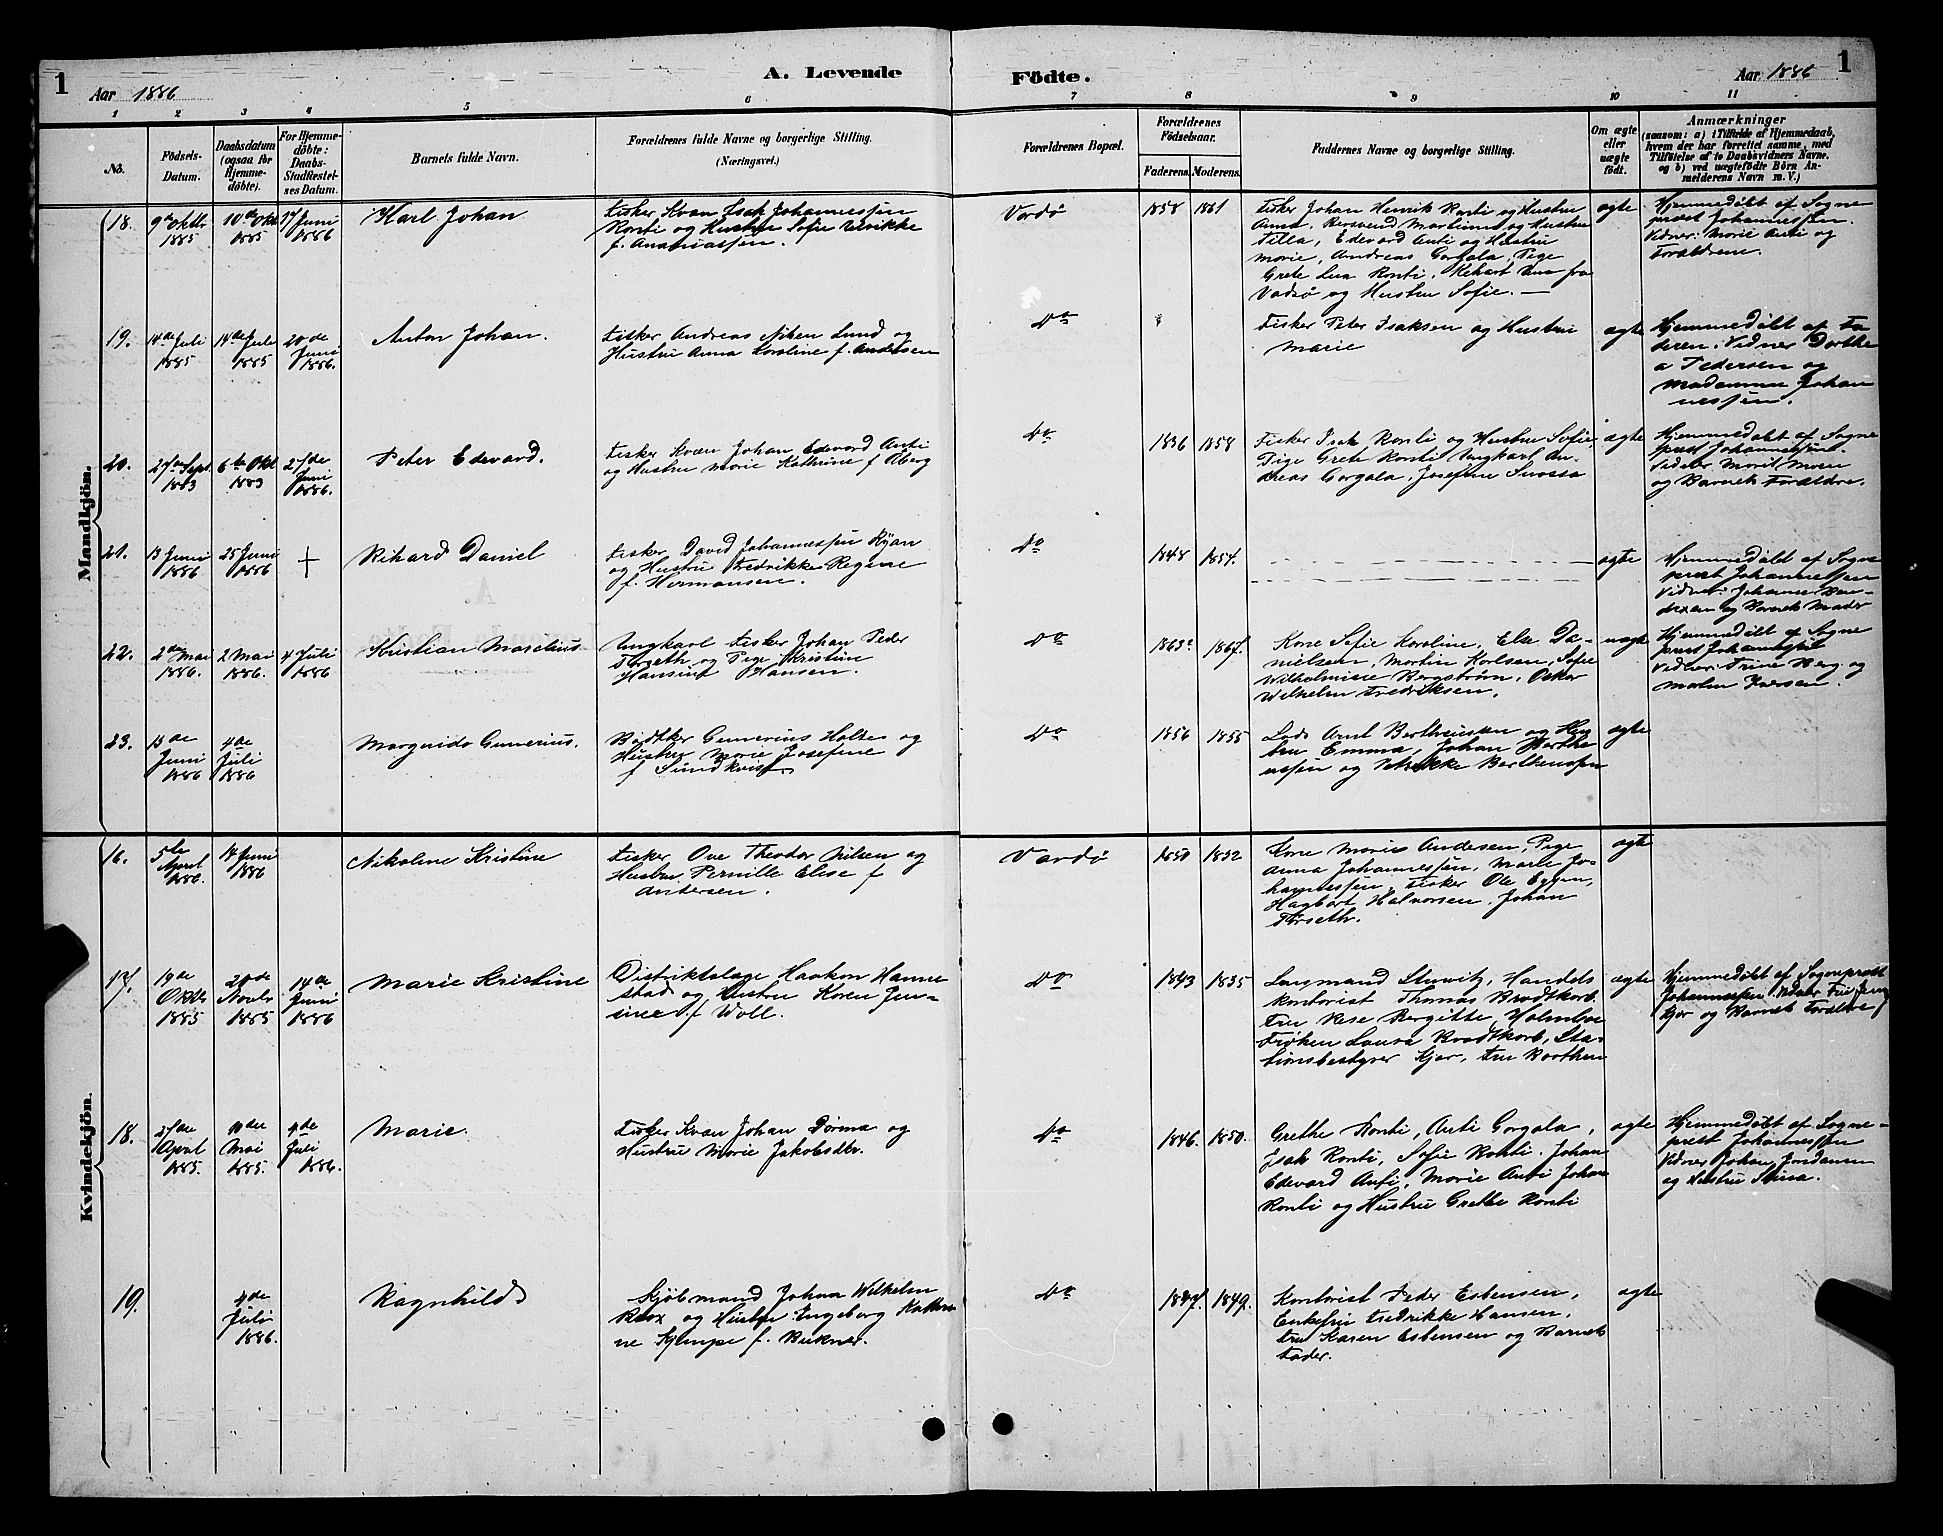 1
Aar 1886
A. Levende
Födte.
Aar 1886
1
1 2 3 4 5 6 7 8 9 10 11
No.
Födsels-
Datum.
Daabsdatum
(ogsaa för
Hjemme-
döbte).
For Hjemme-
döbte:
Daabs-
Stadfæstel-
ses Datum.
Barnets fulde Navn.
Forældrenes fulde Navne og borgerlige Stilling.
(Næringsvei.)
Forældrenes Bopæl.
Forældrenes
Födselsaar.
Faderens.
Moderens.
Faddernes Navne og borgerlige Stilling.
Om ægte
eller
uægte
födt.
Anmærkninger
(saasom: a) i Tilfælde af Hjemmedaab,
hvem der har forrettet samme, med
Tilföielse af to Daabsvidners Navne,
og b) ved uægtefödte Börn An-
melderens Navn m. V.)
Mandkjön.
18.
9de Oktbr
1885
10de Okt
1885
17 Juni
1886
Karl Johan
Fisker Kvæn Isak Johannessen
Ronti og Hustru Sofie Ulrikke
f. Ananiassen.
Vardø
1858
1861
Fisker Johan Henrik Ronti og Hustru
Anna, Martinus og Hustru
Tilla, Edevard Anti og Hustru
Marie, Andreas Gorgala, Pige
Grete Lisa Ronti, fra
Vadsø og Hustru Sofie. —
ægte
Hjemmedøbt af Sogne
prest Johannessen.
Vidner: Marie Anti og
Forældrene.
19.
14de Juli
1885
14de Juli
1885
20de
Juni
1886.
Anton Johan.
Fisker Andreas Lund og
Hustru Anna Karoline f. Andersen
Do
Fisker Peter Isaksen og Hustru
Marie
ægte
Hjemmedøbt af Fa
deren. Vidner Dorthe
a Pedersen og
Madamme Johan
nessen.
20.
27de Sept
1883
6te Okt
1883
27de
Juni
1886.
Peter Edevard.
Fisker Kvæn Johan Edevard Anti
og Hustru Marie Kathrine f. Åberg
Do
1836
1858
Fisker Isak Ronti og Hustru Sofie,
Pige Grete Ronti Ungkarl An-
dreas Gorgala, Josefine Suossa
ægte
Hjemmedøbt af Sogne
prest Johannessen.
Vidner Marit Moen
og Barnets Forældre.
21.
13 Juni
1886
25 Juni
1886
+
Rikard Daniel
Fisker David Johannessen Ryan
og Hustru Fredrikke Regine
f. Hermansen.
Do
1848
1854.
ægte
Hjemmedøbt af Sogne
prest Johannessen
Vidner: Johanne
og Barnets Moder
22.
2de Mai
1886.
2 Mai
1886.
4 Juli
1886
Kristian Moselius
Ungkarl Fisker Johan Peder
Forseth og Pige Kristine
Hansine Hansen.
Do
1863
1867.
Kone Sofie Karoline, Else Da-
nielsen, Martin Karlsen, Sofie
Wilhelmine Bergstrøm, Oskar
Wilhelm Fredriksen.
uægte
Hjemmedøbt af Sogne
prest Johannessen
Vidner: Trine Berg og
Malin Iversen.
23.
13de
Juni
1886
4de
Juli
1886
Margvido Gunerius.
Bødtker Gunerius Holtes og
Hustru Marie Josefine
f. Sundkvist
Do
1856
1855
Lods Arnt Berthinsen og Hu-
stru Emma, Johan Berthe
ussen og Petrikke Bertheussen
ægte
Kvindekjön.
16.
5te
April
1886.
14 Juni
1886
Nikoline Kristine
Fisker Ove Theodor Nilsen og
Hustru Pernille Elise f.
Andersen.
Vardø
1850
1852
Kone Marie Andersen, Pige
Anna Johannessen, Marle Jo-
hannessen, Fisker Ole Eggen,
Hagbart Halvorsen, Johan
Forseth.
ægte
17.
19de
Oktbr
1885
20de
Novbr
1885
14de
Juni
1886
Marie Kristine
Distriktslæge Haakon Hanne
stad og Hustru Karen Jen-
sine f Woll.
Do
1843
1835
Langmand Sturitz, Handels
kontorist Thomas Brodtkorb.
Fru Rese Bergitte Holmboe
Frøken Laura Brodtkorb, Sta-
tionsbestyrer Kjær, Fru Boothen
ægte
Hjemmedøbt af Sogneprest
Johannessen. Vidner Fru Jenny
Kjær og Barnets Forældre
18.
27de
April
1885.
10de
Mai
1885.
4de
Juli
1886.
Marie.
Fisker Kvæn Johan Dørma og
Hustru Marie Jakobsdtr.
Do
1846.
1850.
Grethe Ronti, Anti Gorgala,
Isak Ronti, Sofie Ronti. Johan
Edevard Anti, Marie Anti Johan
Ronti og Hustru Grethe Ronti
ægte
Hjemmedøbt af Sogne-
prest Johannessen
Vidner Johan Jordansen
og Hustru Stina.
19.
4de
Juli
1886.
Ragnhild
Kjøbmand Johan Wilhelm
Rox og Hustru Engeborg Kathri
ne Sylimpe f. Bukner.
Do
1847.
1849.
Kontorist Peder Esbensen,
Enkefru Fredrikke Hansen,
Fru Karen Esbensen og Barnets
Fader.
ægte